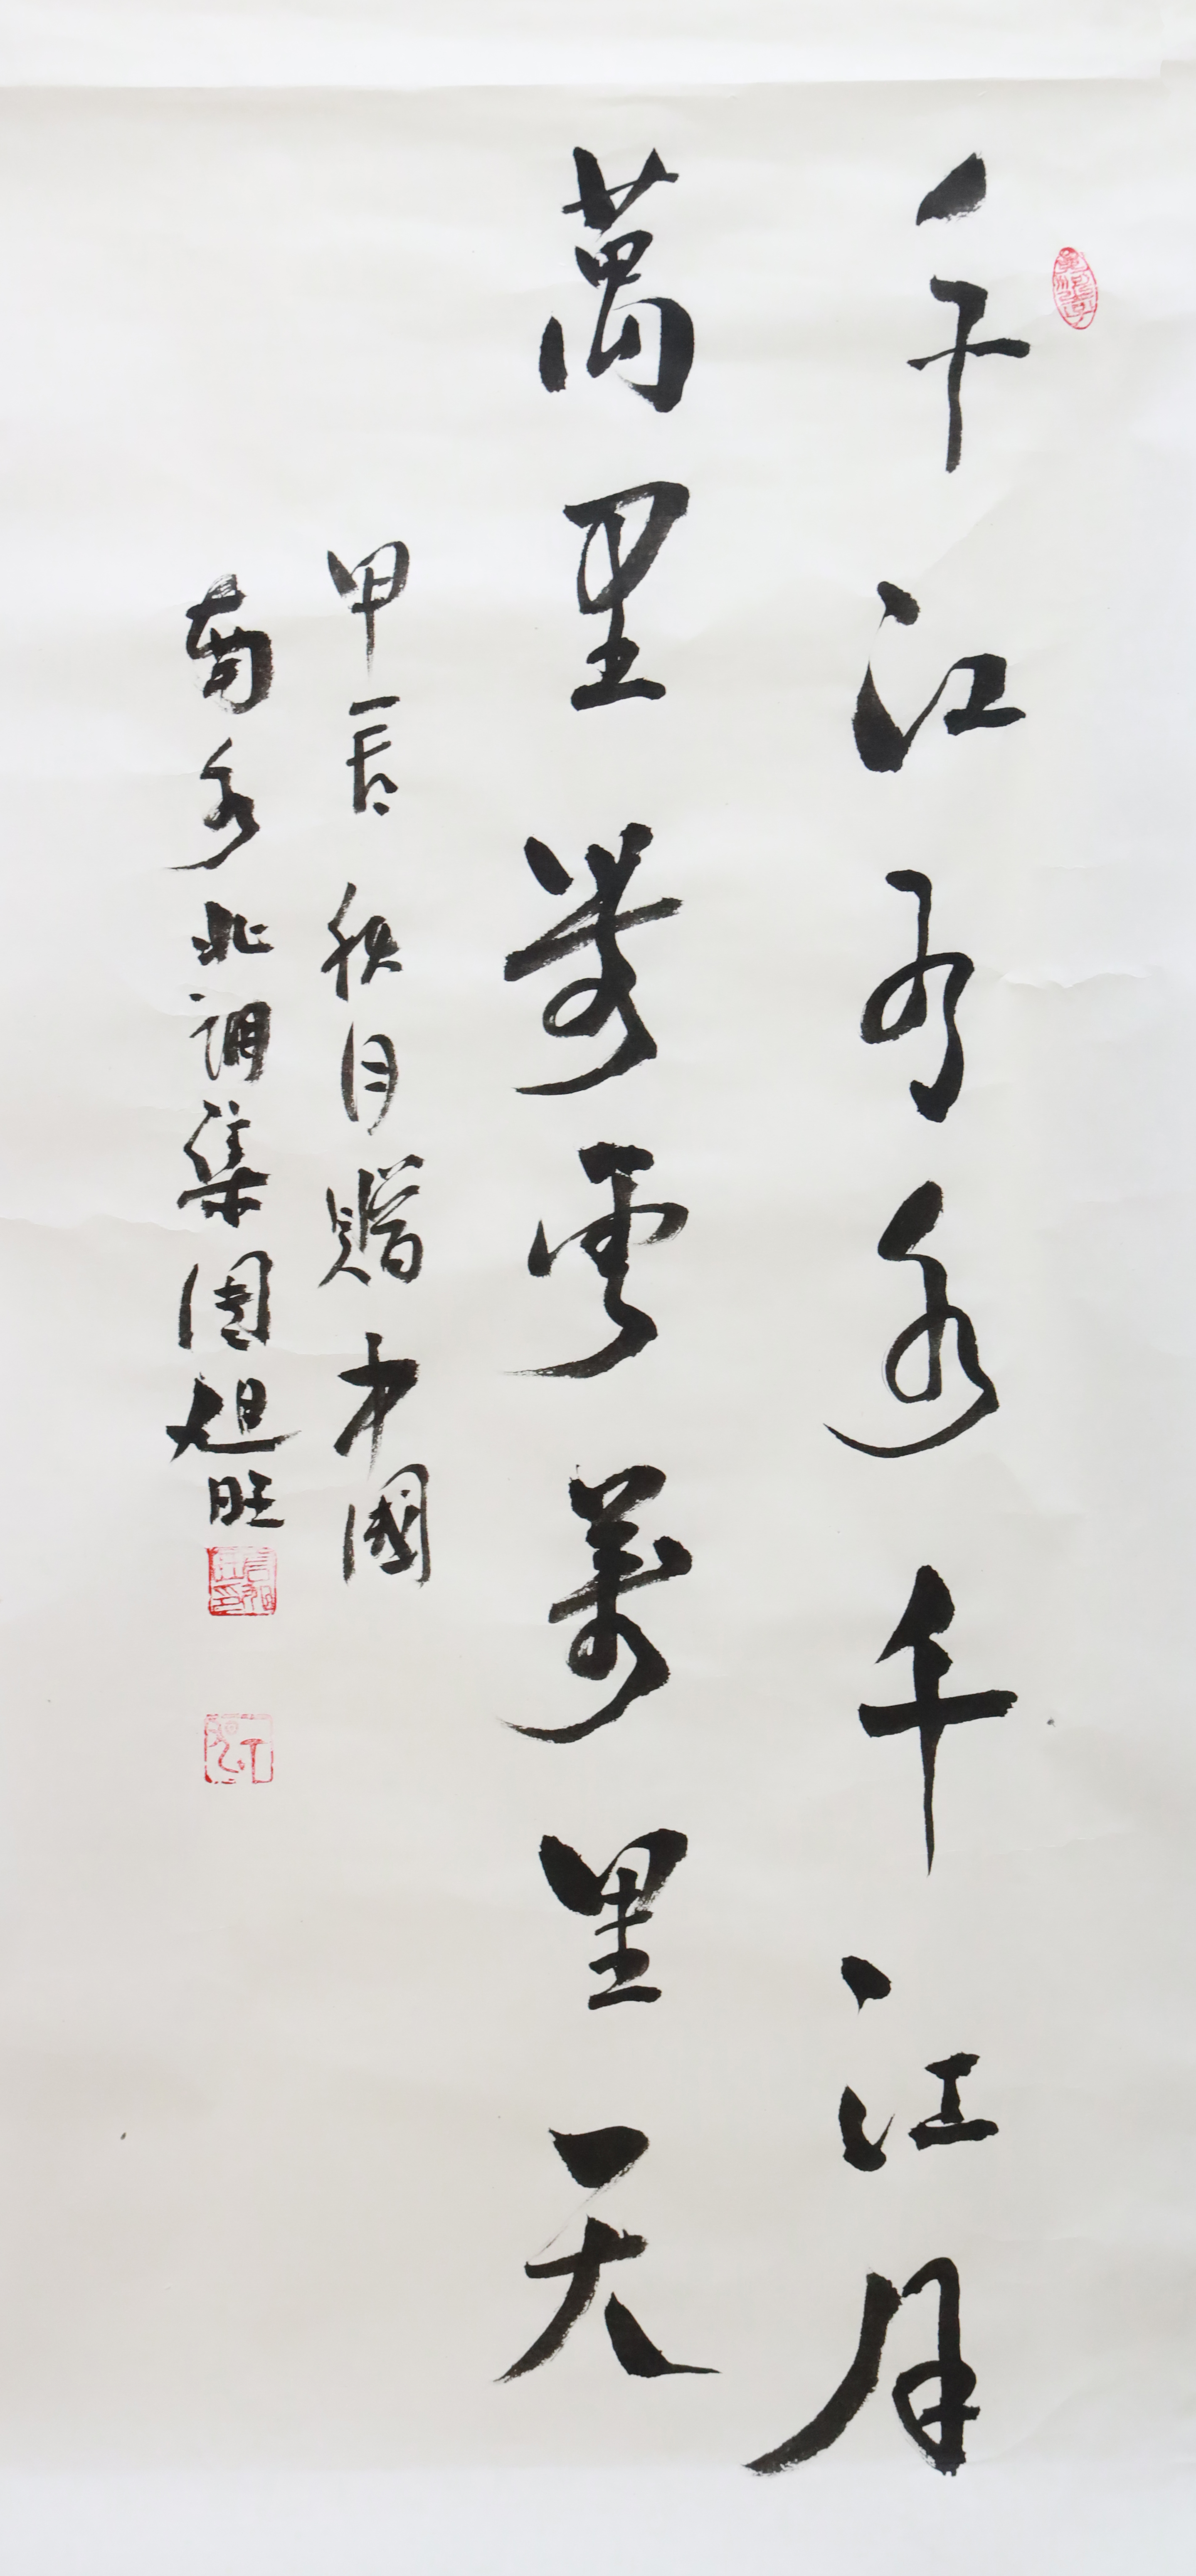 千江有水千江月
萬里無雲萬里天
甲辰秋月贈中國
南水北調集團旭旺